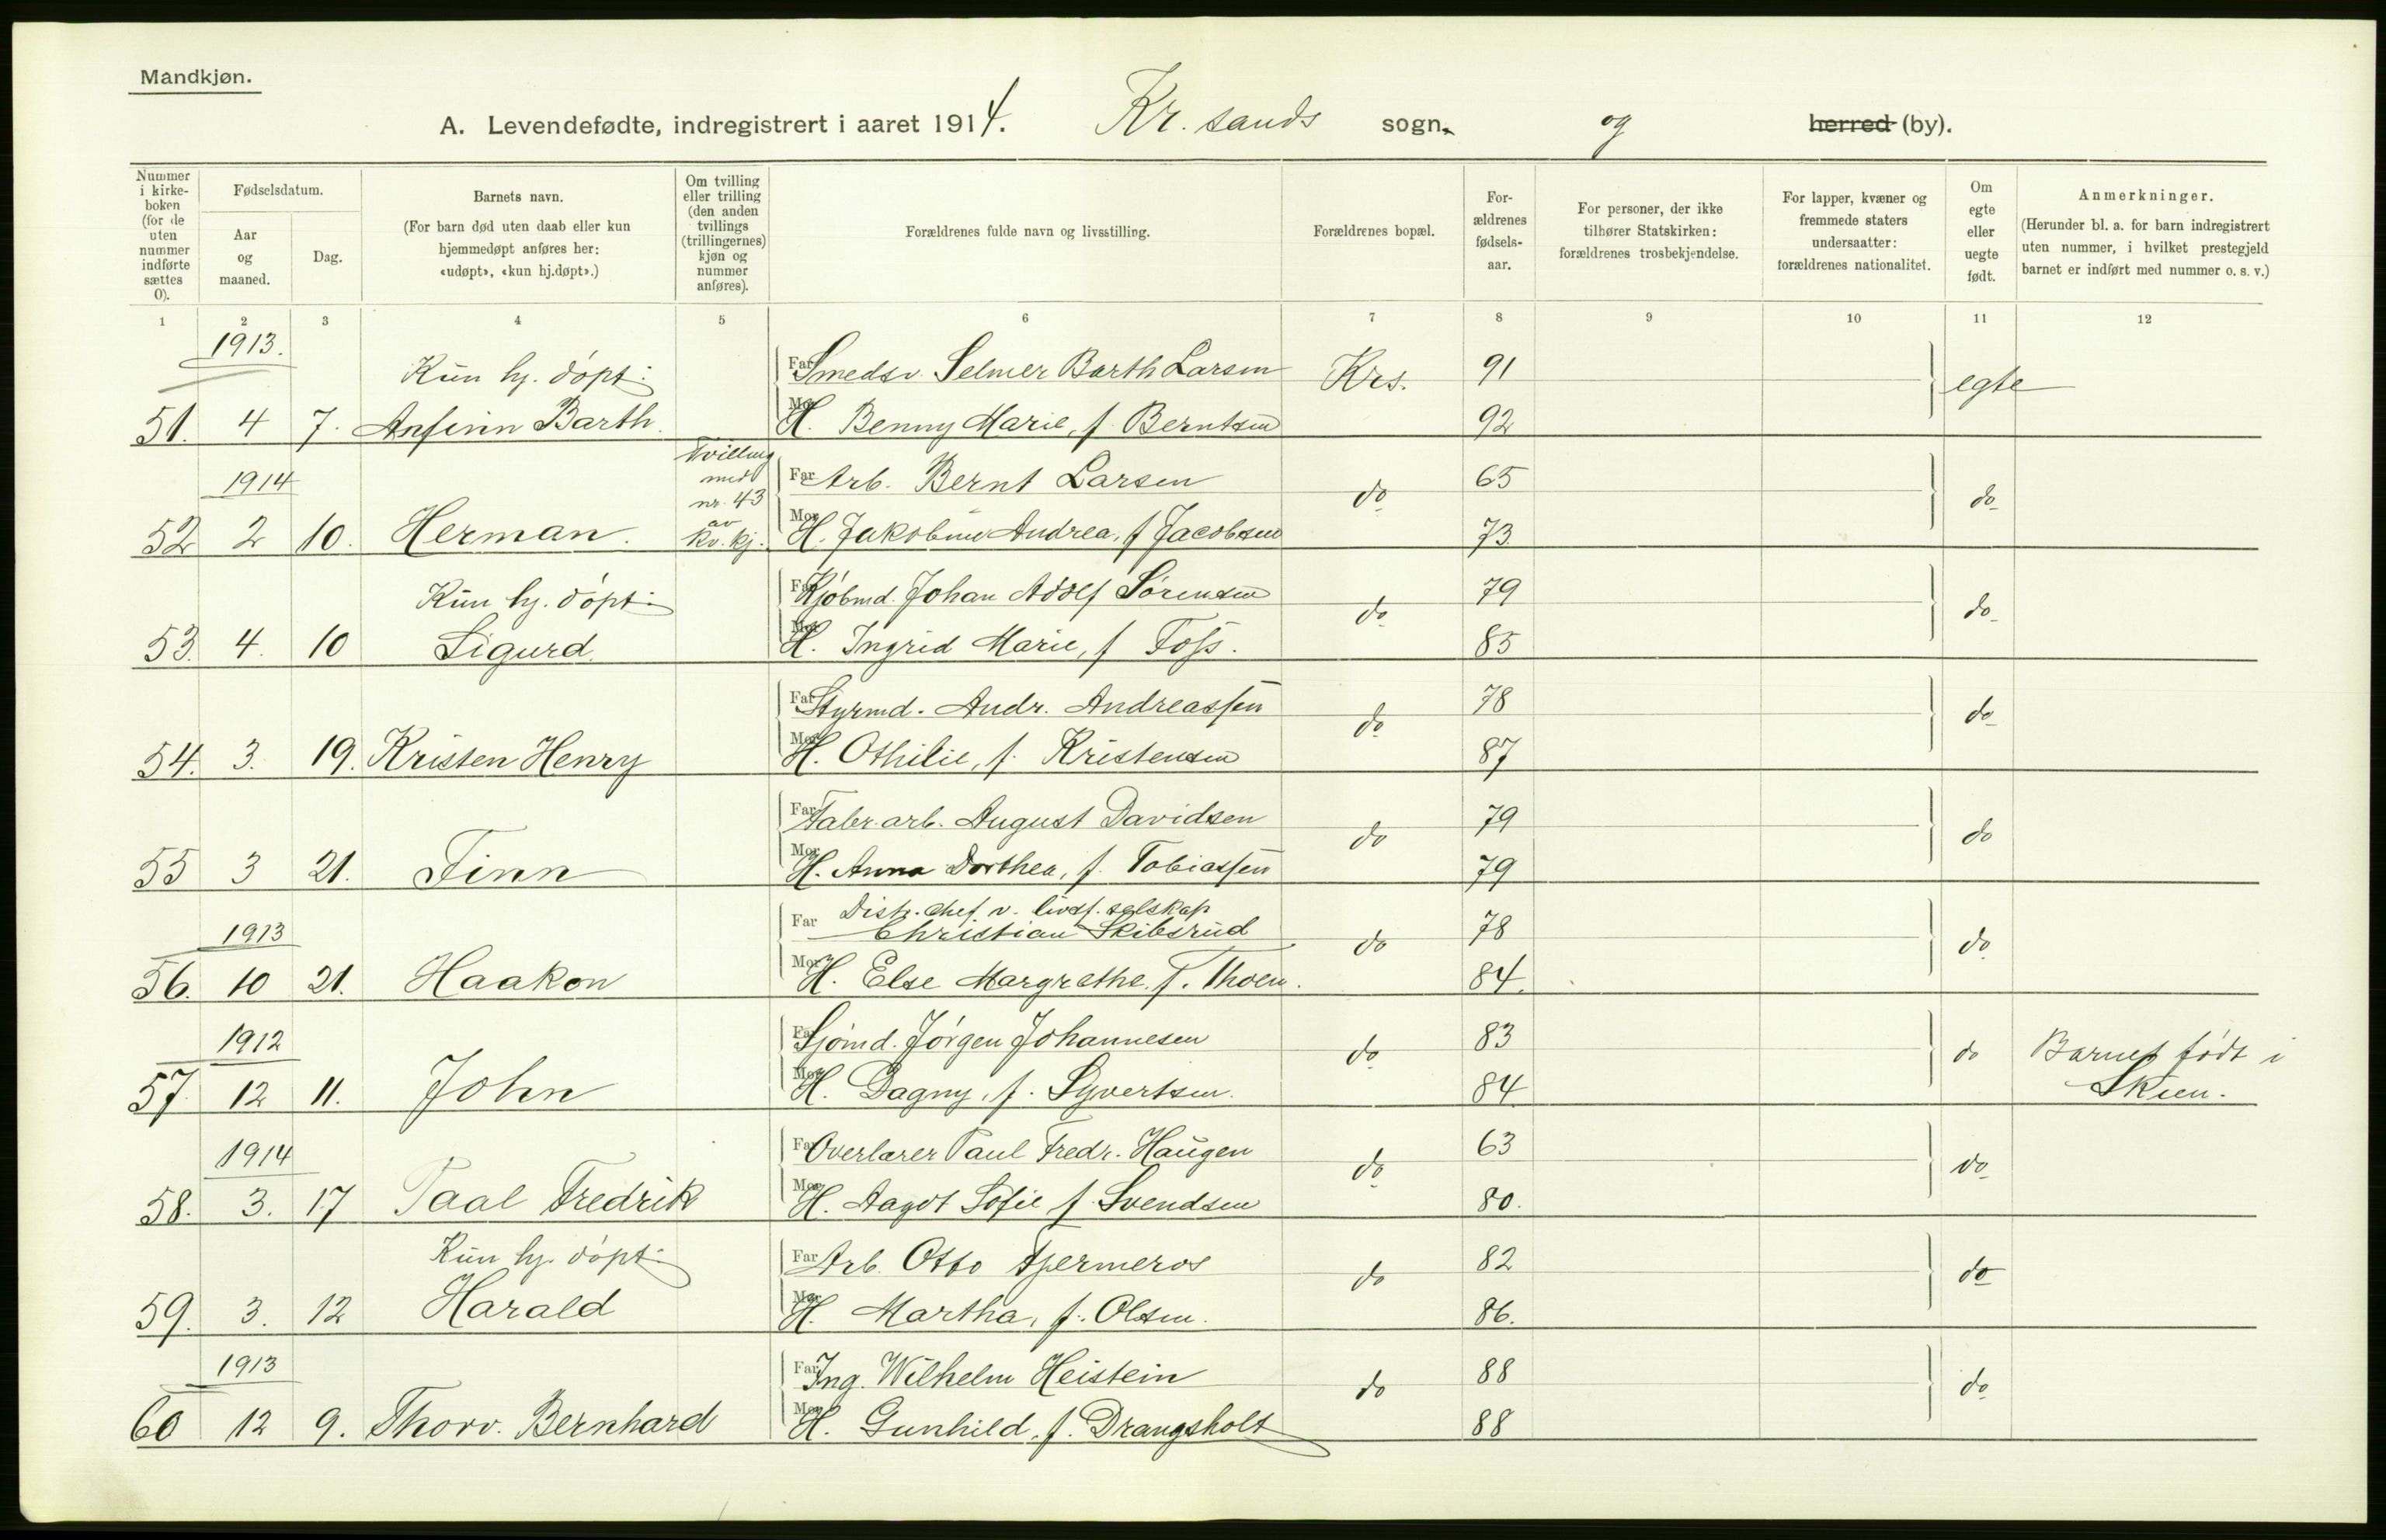 Mandkjøn.
A. Levendefødte, indregistrert i aaret 1914. Kr.sands sogn. og herred (by).
Nummer i kirke-boken (for de uten nummer indførte sættes 0).
Fødselsdatum.
Aar og maaned.
Dag.
Barnets navn.
(For barn død uten daab eller kun hjemmedøpt anføres her: «udøpt», «kun hj.døpt».)
Om tvilling eller trilling (den anden tvillings (trillingernes) kjøn og nummer anføres).
Forældrenes fulde navn og livsstilling.
Forældrenes bopæl.
For-ældrenes fødsels-aar.
For personer, der ikke tilhører Statskirken: forældrenes trosbekjendelse.
For lapper, kvæner og fremmede staters undersaatter: forældrenes nationalitet.
Om egte eller uegte født.
Anmerkninger.
(Herunder bl. a. for barn indregistrert uten nummer, i hvilket prestegjeld barnet er indført med nummer o. s. v.)
1 2 3 4 5 6 7 8 9 10 11 12
1913.
Kun hj. döpt:
Far Smedsv. Selmer Barth Larsen Krs. 91 egte
51. 4 7. Anfinn Barth. Mor H. Benny Marie, f. Berntsen 92
1914
Tvilling med nr. 43 av kv. kj.
Far Arb. Bernt Larsen do 65 do
52 2 10. Herman. Mor H. Jakobine Andrea, f Jacobsen 73
Kun hj. döpt:
Far Kjöbmd. Johan Adolf Sörensen do 79 do
53. 4. 10 Sigurd. Mor H. Ingrid Marie, f Foss. 85
Far Styrmd. Andr. Andreassen do 78 do
54. 3. 19. Kristen Henry Mor H. Othilie, f. Kristensen 87
Far Fabr. arb. August Davidsen do 79 do
55 3 21. Finn Mor H. Anna Dorthea, f. Tobiassen 79
1913
Far Distr. chef v. livsf. selskap
Christian Skibsrud do 78 do
56. 10 21. Haakon Mor H. Else Margrethe, f. Thoen. 84.
1912
Far Sjömd. Jörgen Johannesen do 83 do Barnet födt i
57. 12 11. John Mor H. Dagny, f. Syvertsen. 84 Skien.
1914
Far Overlærer Paul Fredr. Haugen do 63 do
58. 3. 17 Paal Fredrik Mor H. Aagot Sofie f. Svendsen 80.
Kun hj. döpt:
Far Arb. Otto Tjermeros do 82 do
59. 3. 12 Harald Mor H. Martha, f. Olsen. 86.
1913
Far Ing. Wilhelm Heistein do 88 do
60 12 9. Thorv. Bernhard Mor H. Gunhild, f. Drangsholt 88